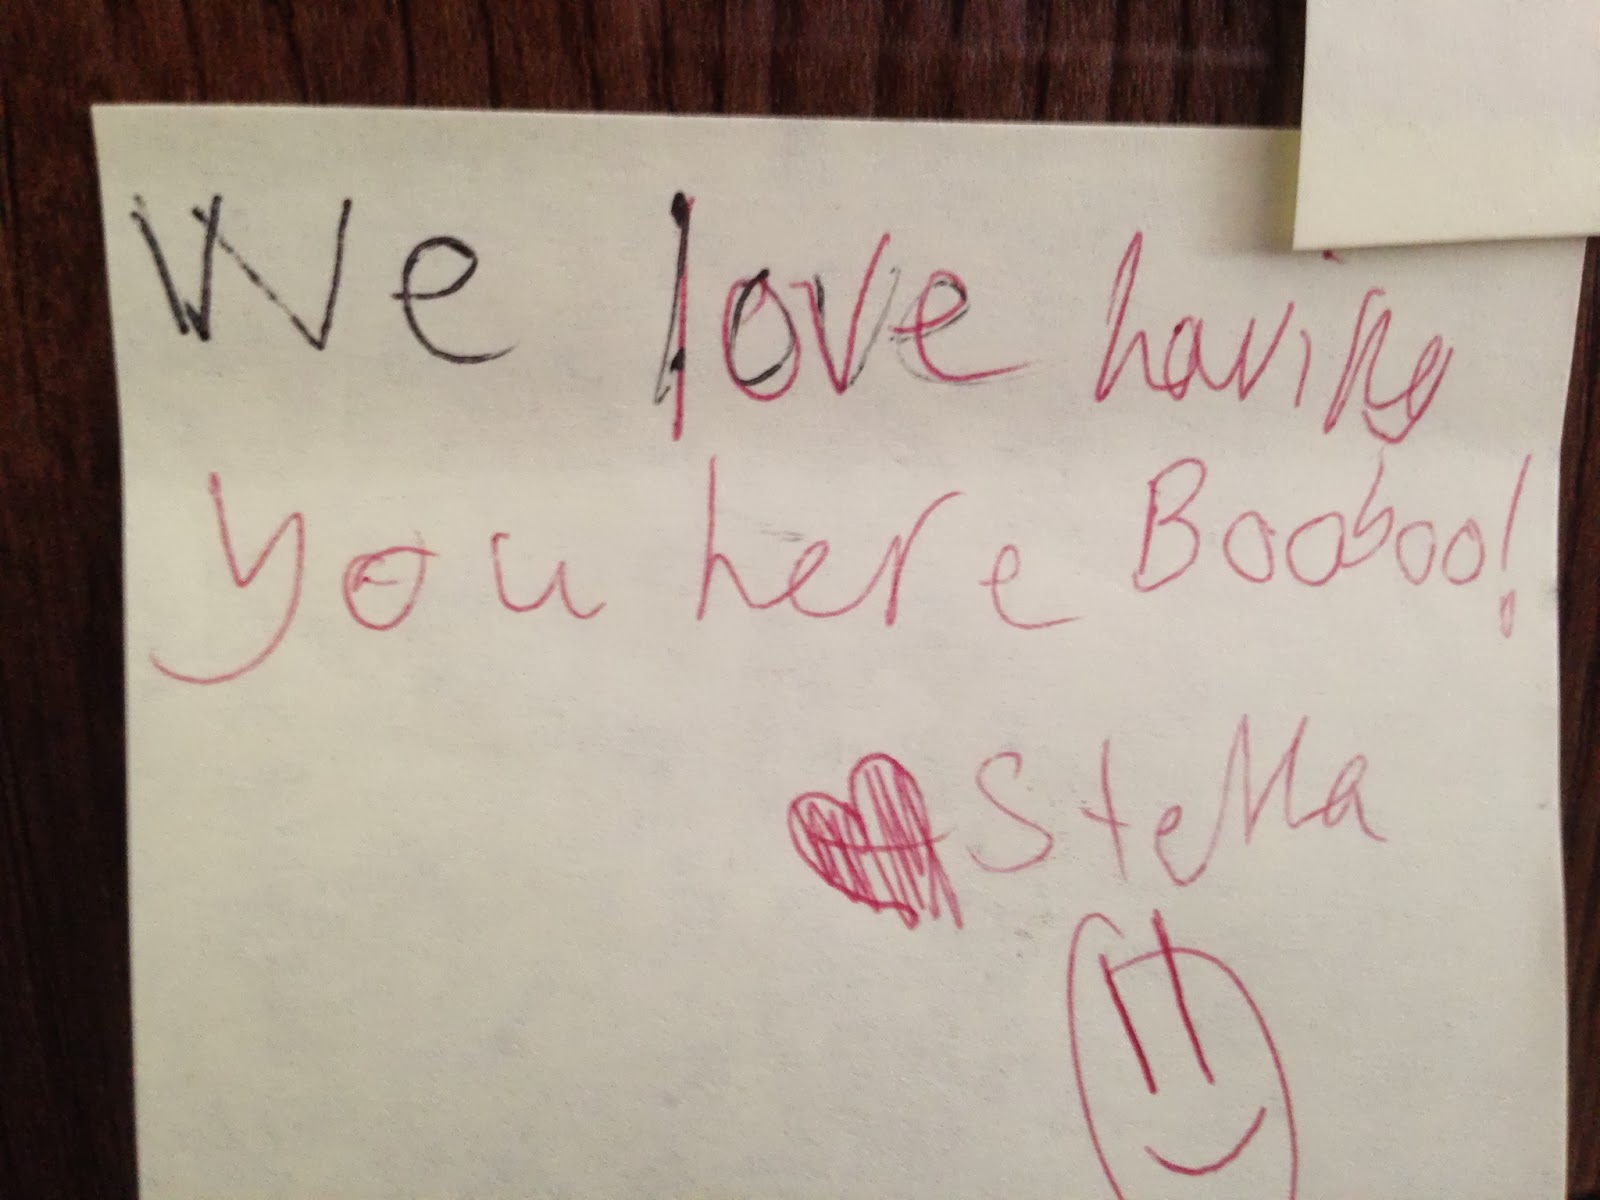 We love having
you here Booboo!
♥ Stella